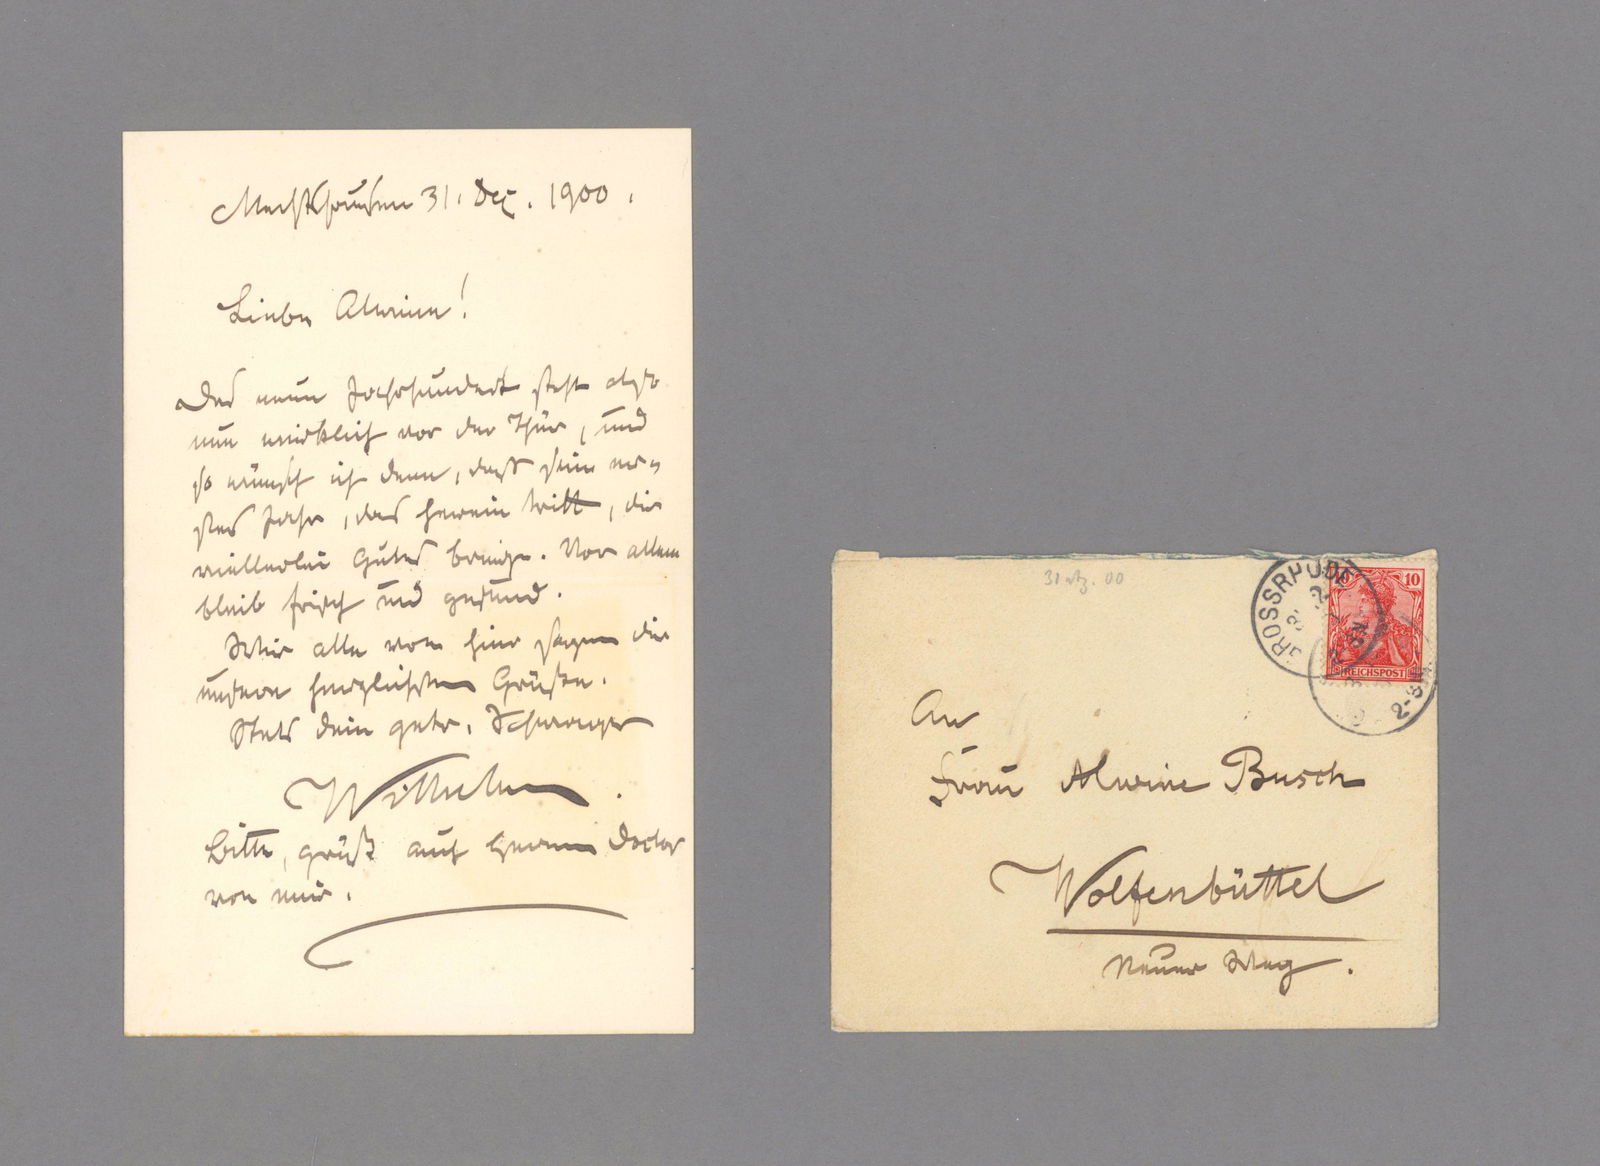 Mechtshausen 31. Dez. 1900.
Liebe Alwine!
Das neue Jahrhundert steht also
nun wirklich vor der Thür, und
so wünsch ich denn, daß sein er-
stes Jahr, das herein tritt, dir
vielerlei Gutes bringe. Vor allem
bleib frisch und gesund.
Wir alle von hier sagen dir
unsere herzlichsten Grüße.
Stets dein getr. Schwager
Wilhelm.
Bitte, grüß auch Herrn Doctor
von mir.
31 12. 00
GROSSRHÜDE
10
REICHSPOST
An
Frau Alwine Busch
Wolfenbüttel
Neuer Weg.